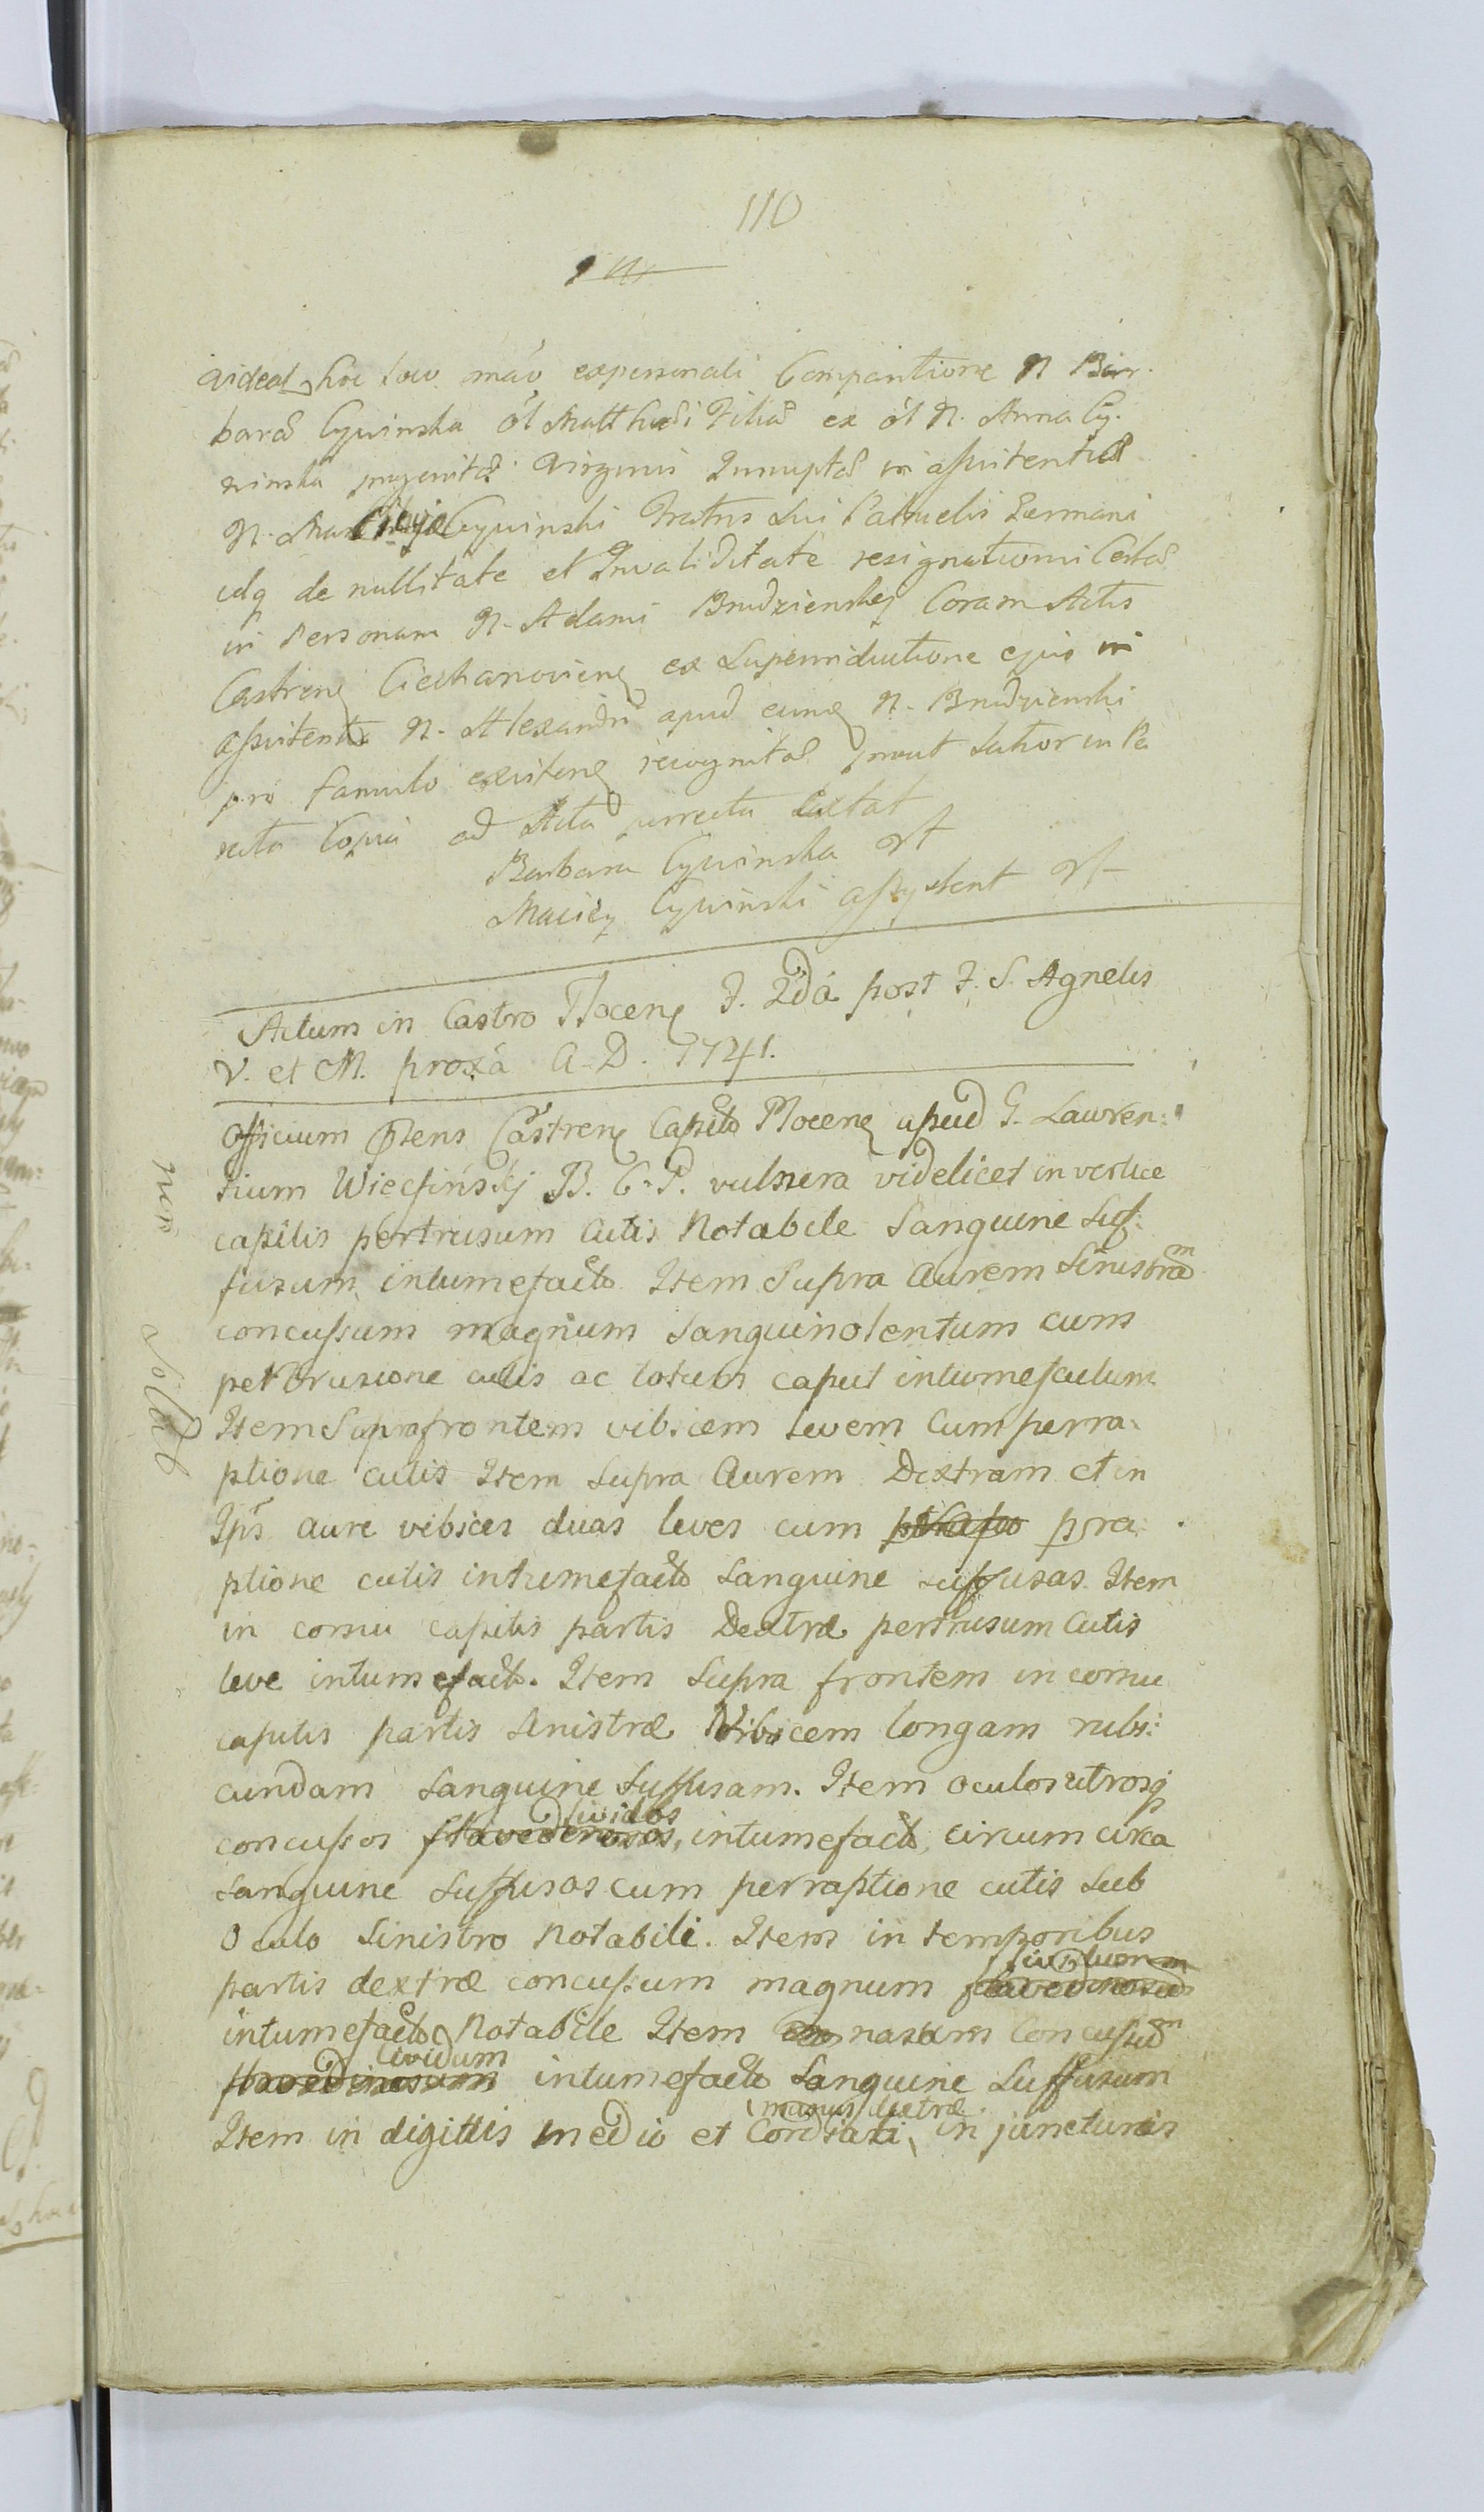 110
videat hoc loco expersonali Comparitione N Bar
baræ Cywinska ol Matthæi Filiæ ex ol N. Anna Cy
winska progenitæ Virginis Innuptæ in assistentia
N. Cywinski Fratris Sui Patruelis Germani
idq de nullitate et Invaliditate resignationis Certæ
in Personam N. Adami Brudzienskj Coram Actis
Castren Ciechanovien ex Superinductione ejus in
assistentia N. Alexandri apud eund N. Brudzienski
pro famulo existen recognitæ prout latior in Pa
rata Copia ad Acta porrecta Extat
Barbara Cywinska
Maciey Cywinski assystent
Actum in Castro Plocen F. 2dá post F. S. Agnetis
V. et M. proxá A. D. 1741.
Officium Præns Castren Capitl Plocen apud G. Lauren:
tium Wiecsińskj B. C. P. vulnera videlicet in vertice
capitis pertrusum Cutis Notabile Sanguine Suf:
fusum intumefact Item Supra Aurem Sinistram
concussum magnum Sanguinolentum cum
pertrusione cutis ac totum caput intumefactum
Item Supra frontem vibicem levem Cum perra:
ptione cutis Item Supra Aurem Dextram et in
Ips aure vibices duas leves cum perra:
ptione cutis intumefact Sanguine suffusas. Item
in cornu capitis partis Dextræ pertrusum Cutis
leve intumefact. Item Supra frontem in cornu
capitis partis Sinistræ Vibicem longam rubi:
cundam Sanguine Suffusam. Item oculos utrosq
lividos
concussos flavedinosos, intumefact, circum circa
Sanguine Suffusos cum perraptione cutis Sub
Oculo Sinistro Notabili. Item in temporibus
partis dextræ concussum magnum flavedinosum
intumefact Notabile Item nasum Concussum
Lividum
flavedinosum intumefact Sanguine Suffusum
manus dextræ
Item in digittis medio et Cordiali, in juncturis
non